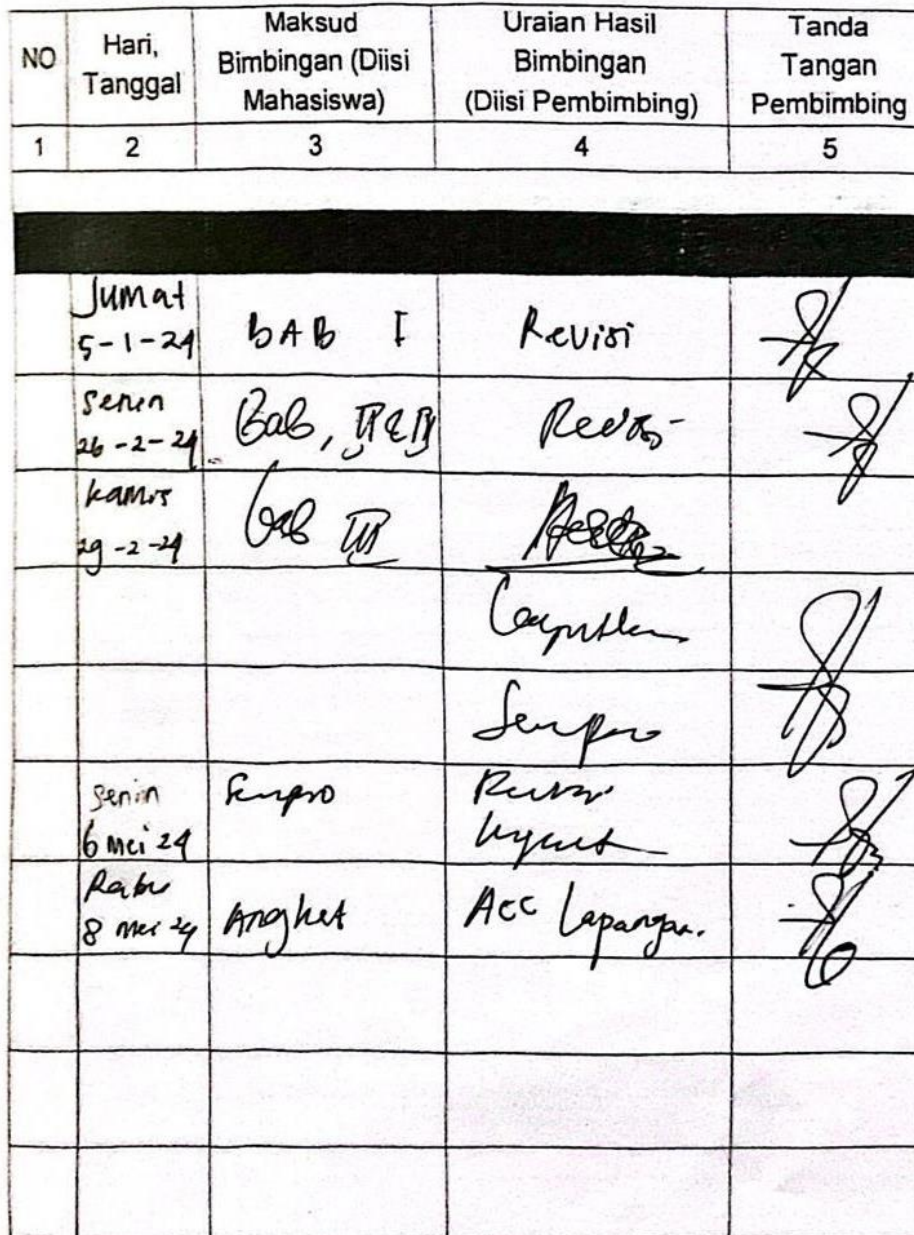 NO
Hari,
Tanggal
Maksud
Bimbingan (Diisi
Mahasiswa)
Uraian Hasil
Bimbingan
(Diisi Pembimbing)
Tanda
Tangan
Pembimbing
1 2 3 4 5
Jumat
5-1-24 BAB I Revisi
Senin
26-2-24 Bab,
Kamis
29-2-24 Bab III
Sempro
Senin Sempro Revisi
6 mei 24
Rabu
8 mei 24 Angket Acc Lapangan.